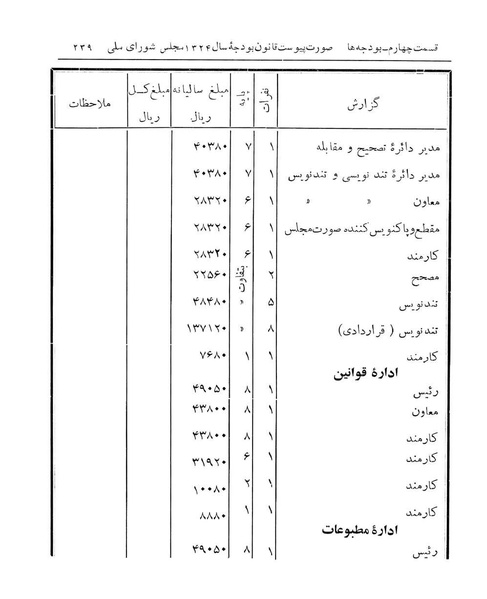 قسمت چهارم-بودجه‌ها صورت پیوست قانون بودجهٔ سال ۱۳۲۴ مجلس شورای ملی ۲۳۹
گزارش نفرات پایه مبلغ سالیانه ریال مبلغ کـل ریال ملاحظات
مدیر دائرهٔ تصحیح و مقابله ۱ ۷ ۴۰۳۸۰
مدیر دائرهٔ تند نویسی و تندنویس ۱ ۷ ۴۰۳۸۰
معاون » » ۱ ۶ ۲۸۳۲۰
مقطع و پاکنویس کننده صورت مجلس ۱ ۶ ۲۸۳۲۰
کارمند ۱ ۶ ۲۸۳۲۰
مصحح ۲ متفاوت ۲۲۵۶۰
تندنویس ۵ » ۴۸۴۸۰
تندنویس ( قراردادی) ۸ » ۱۳۷۱۲۰
کارمند ۱ ۱ ۷۶۸۰
ادارهٔ قوانین
رئیس ۱ ۸ ۴۹۰۵۰
معاون ۱ ۸ ۴۳۸۰۰
کارمند ۱ ۸ ۴۳۸۰۰
کارمند ۱ ۶ ۳۱۹۲۰
کارمند ۱ ۲ ۱۰۰۸۰
کارمند ۱ ۱ ۸۸۸۰
ادارهٔ مطبوعات
رئیس ۱ ۸ ۴۹۰۵۰